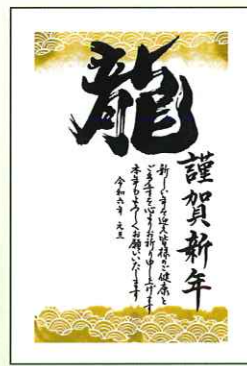 龍
謹賀新年
新しい年を迎え皆様のご健康と
ご多幸を心よりお祈り申し上げます
本年もよろしくお願いいたします
令和六年 元旦